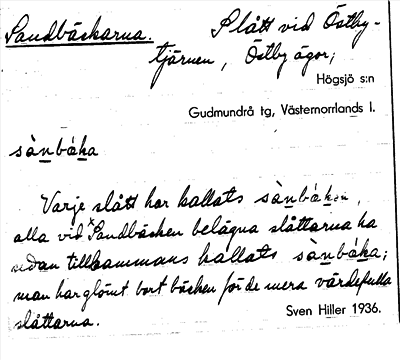 Sandbäckarna. Slått vid Östby-
tjärnen, Östby ägor;
Högsjö s:n
Gudmundrå tg, Västernorrlands l.
sànbáka
Varje slått har kallats sànbáken,
alla vid ˣSandbäcken belägna slåttarna ha
sedan tillsammans kallats sànbáka;
man har glömt bort bäcken för de mera värdefulla
slåttarna.
Sven Hiller 1936.